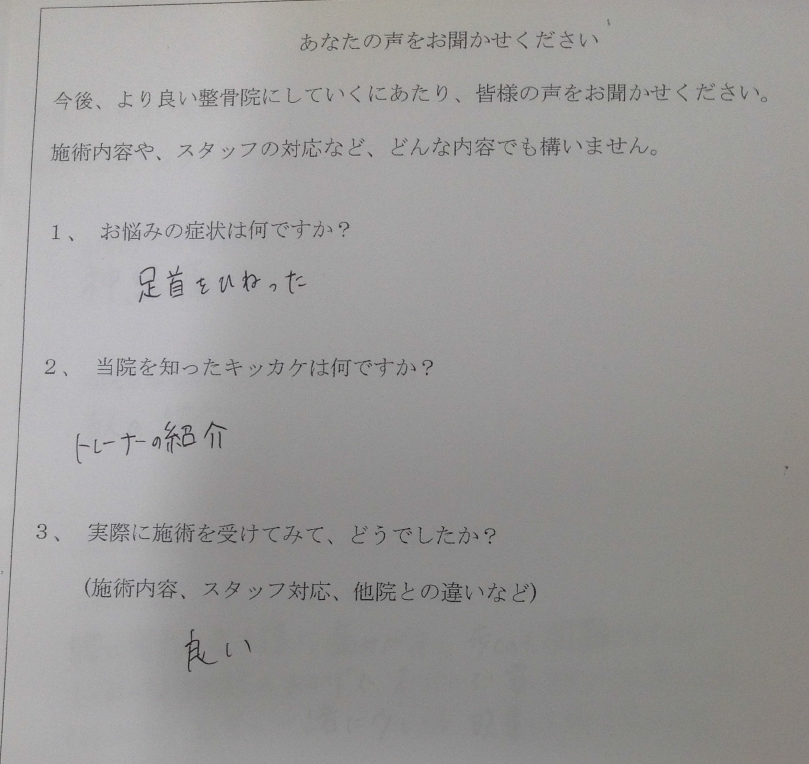 あなたの声をお聞かせください
今後、より良い整骨院にしていくにあたり、皆様の声をお聞かせください。
施術内容や、スタッフの対応など、どんな内容でも構いません。
1、 お悩みの症状は何ですか？
足首をひねった
2、 当院を知ったキッカケは何ですか？
トレーナーの紹介
3、 実際に施術を受けてみて、どうでしたか？
(施術内容、スタッフ対応、他院との違いなど)
良い